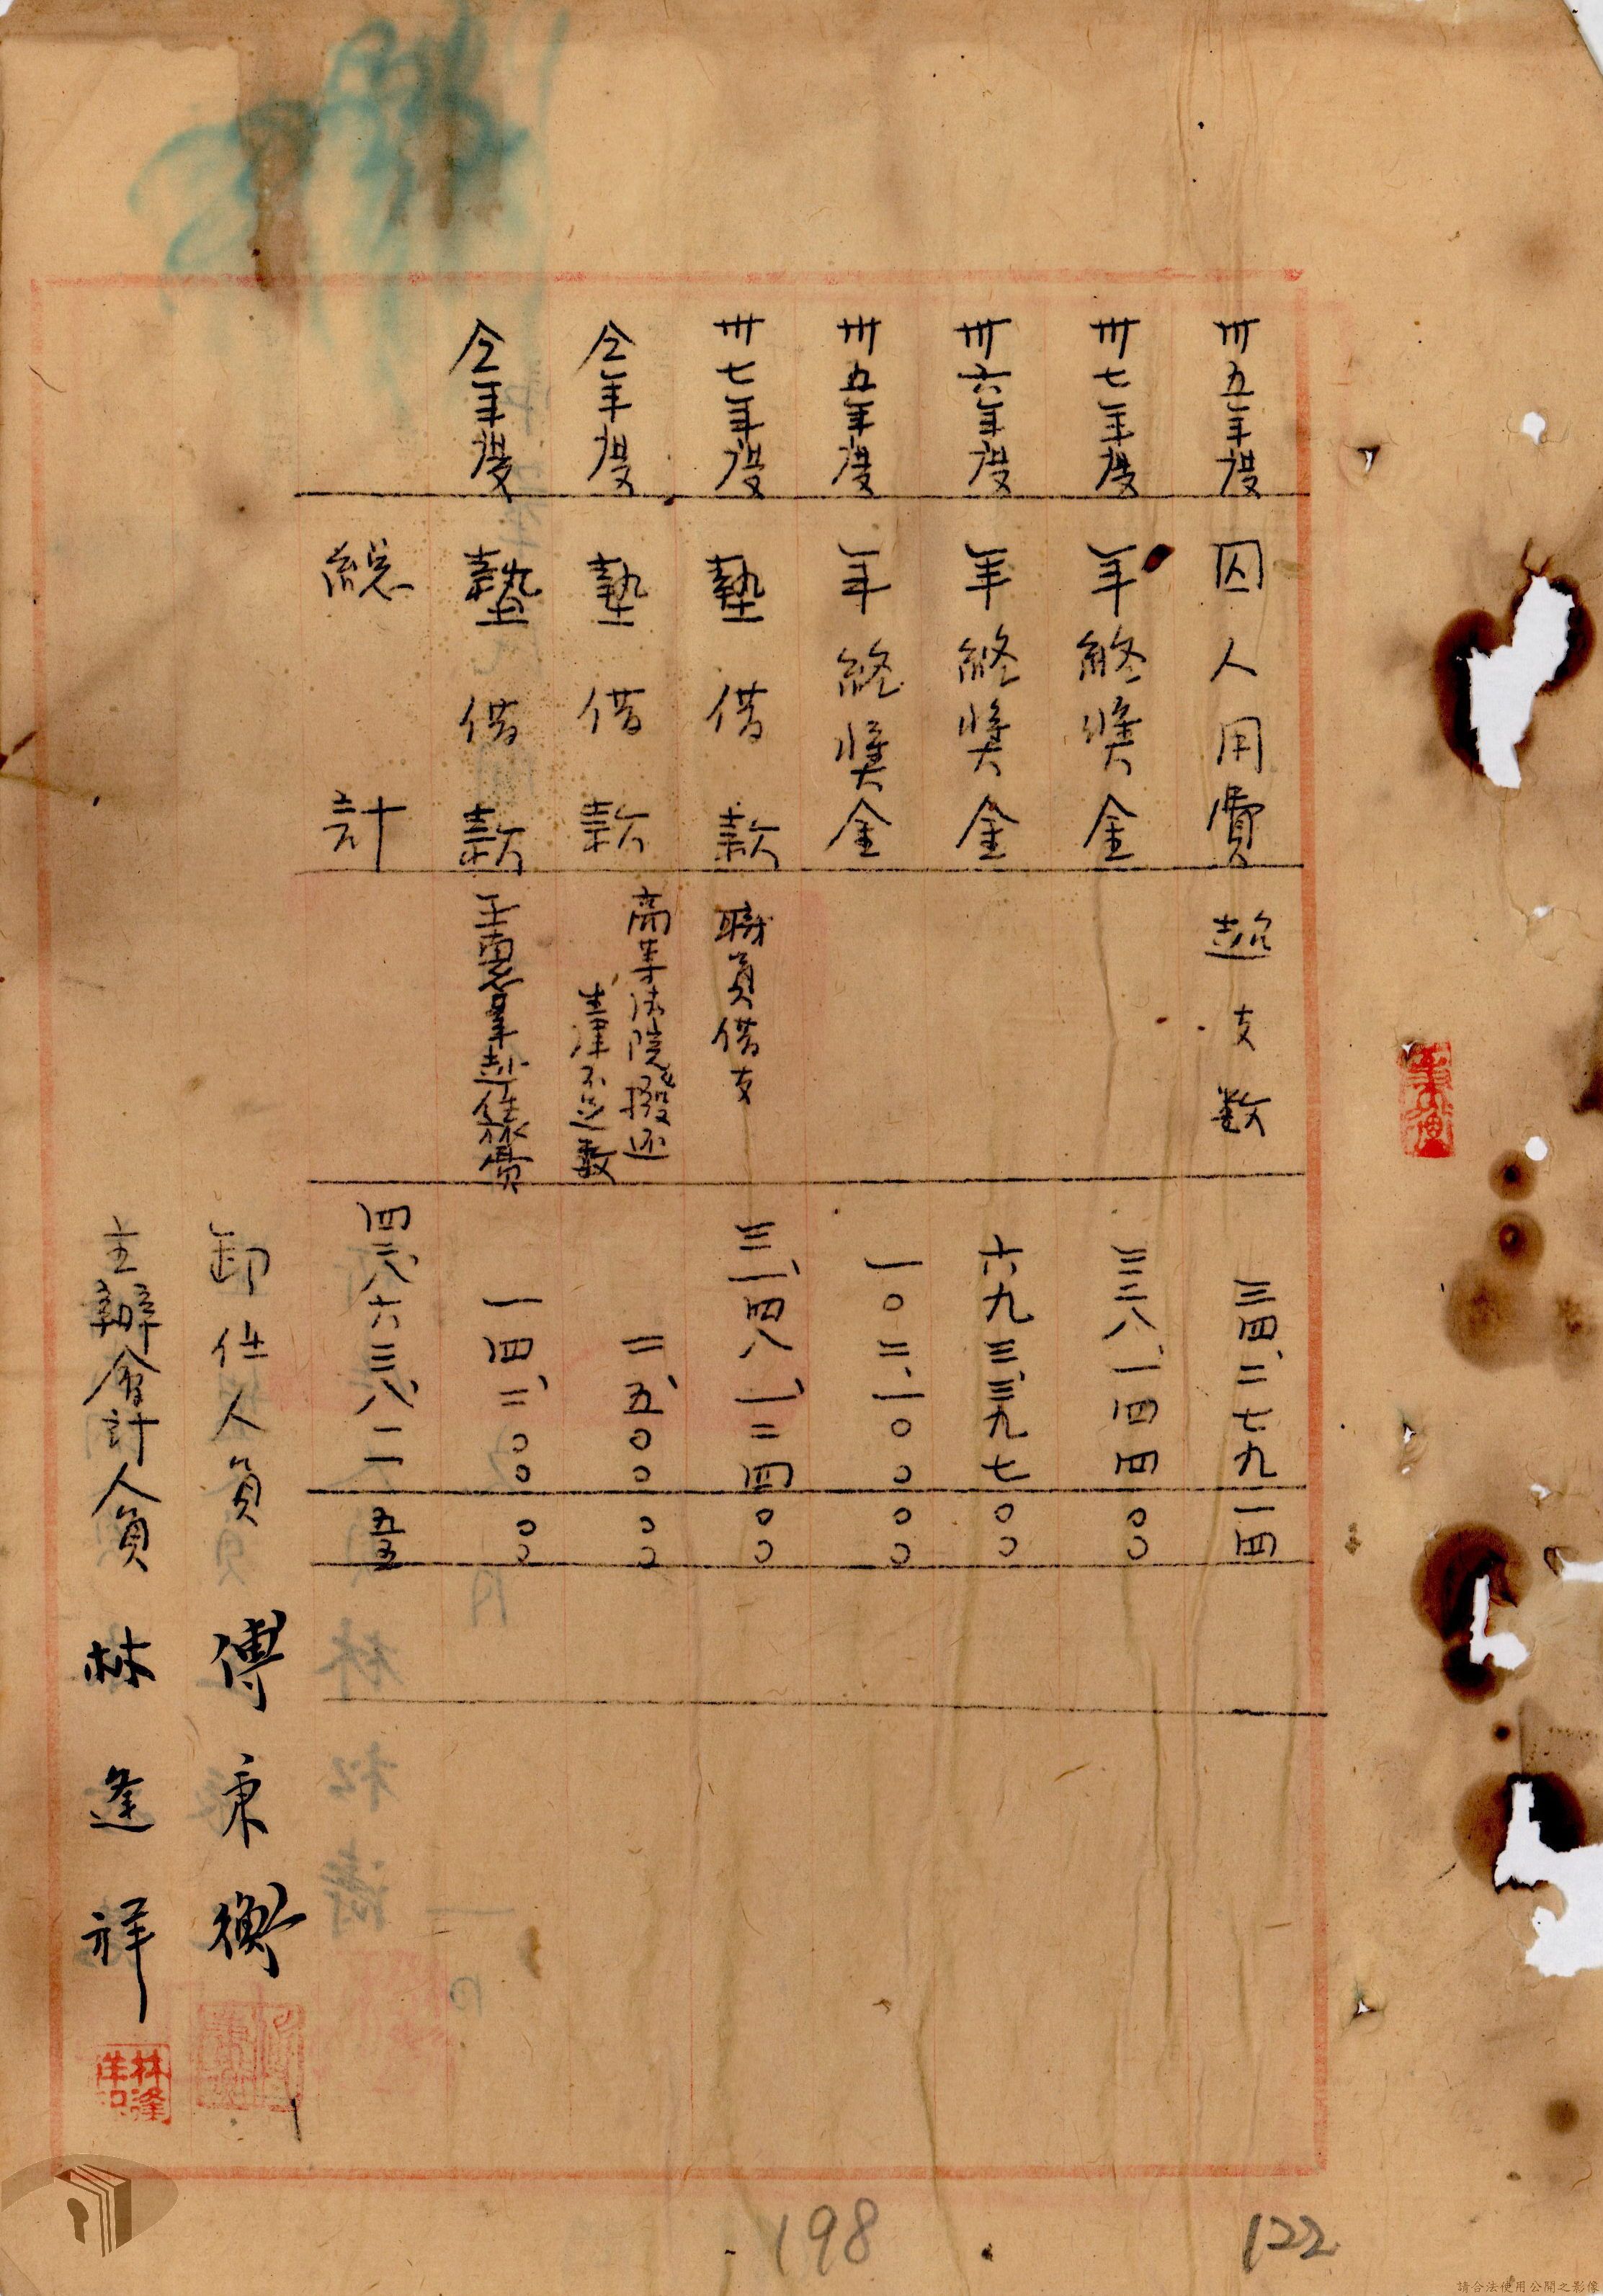 卅五年度 囚人用費 超支数 三四、二七九 一四
卅七年度 年終獎金 三三八、一四四 〇〇
卅六年度 年終獎金 六九三、三九七 〇〇
卅五年度 年終獎金 一〇二、一〇〇 〇〇
卅七年度 墊借款 職員借支 三、一四八、一二四 〇〇
仝年度 墊借款 高等法院撥还
生津不足数 二、五〇〇 〇〇
仝年度 墊借款 赴任旅費 一四二、〇〇 〇〇
総計 六三八、二一 五五
卸任人員 傅秉衡
主辦會計人員 林逢祥
林逢祥印
198
122
請合法使用公開之影像